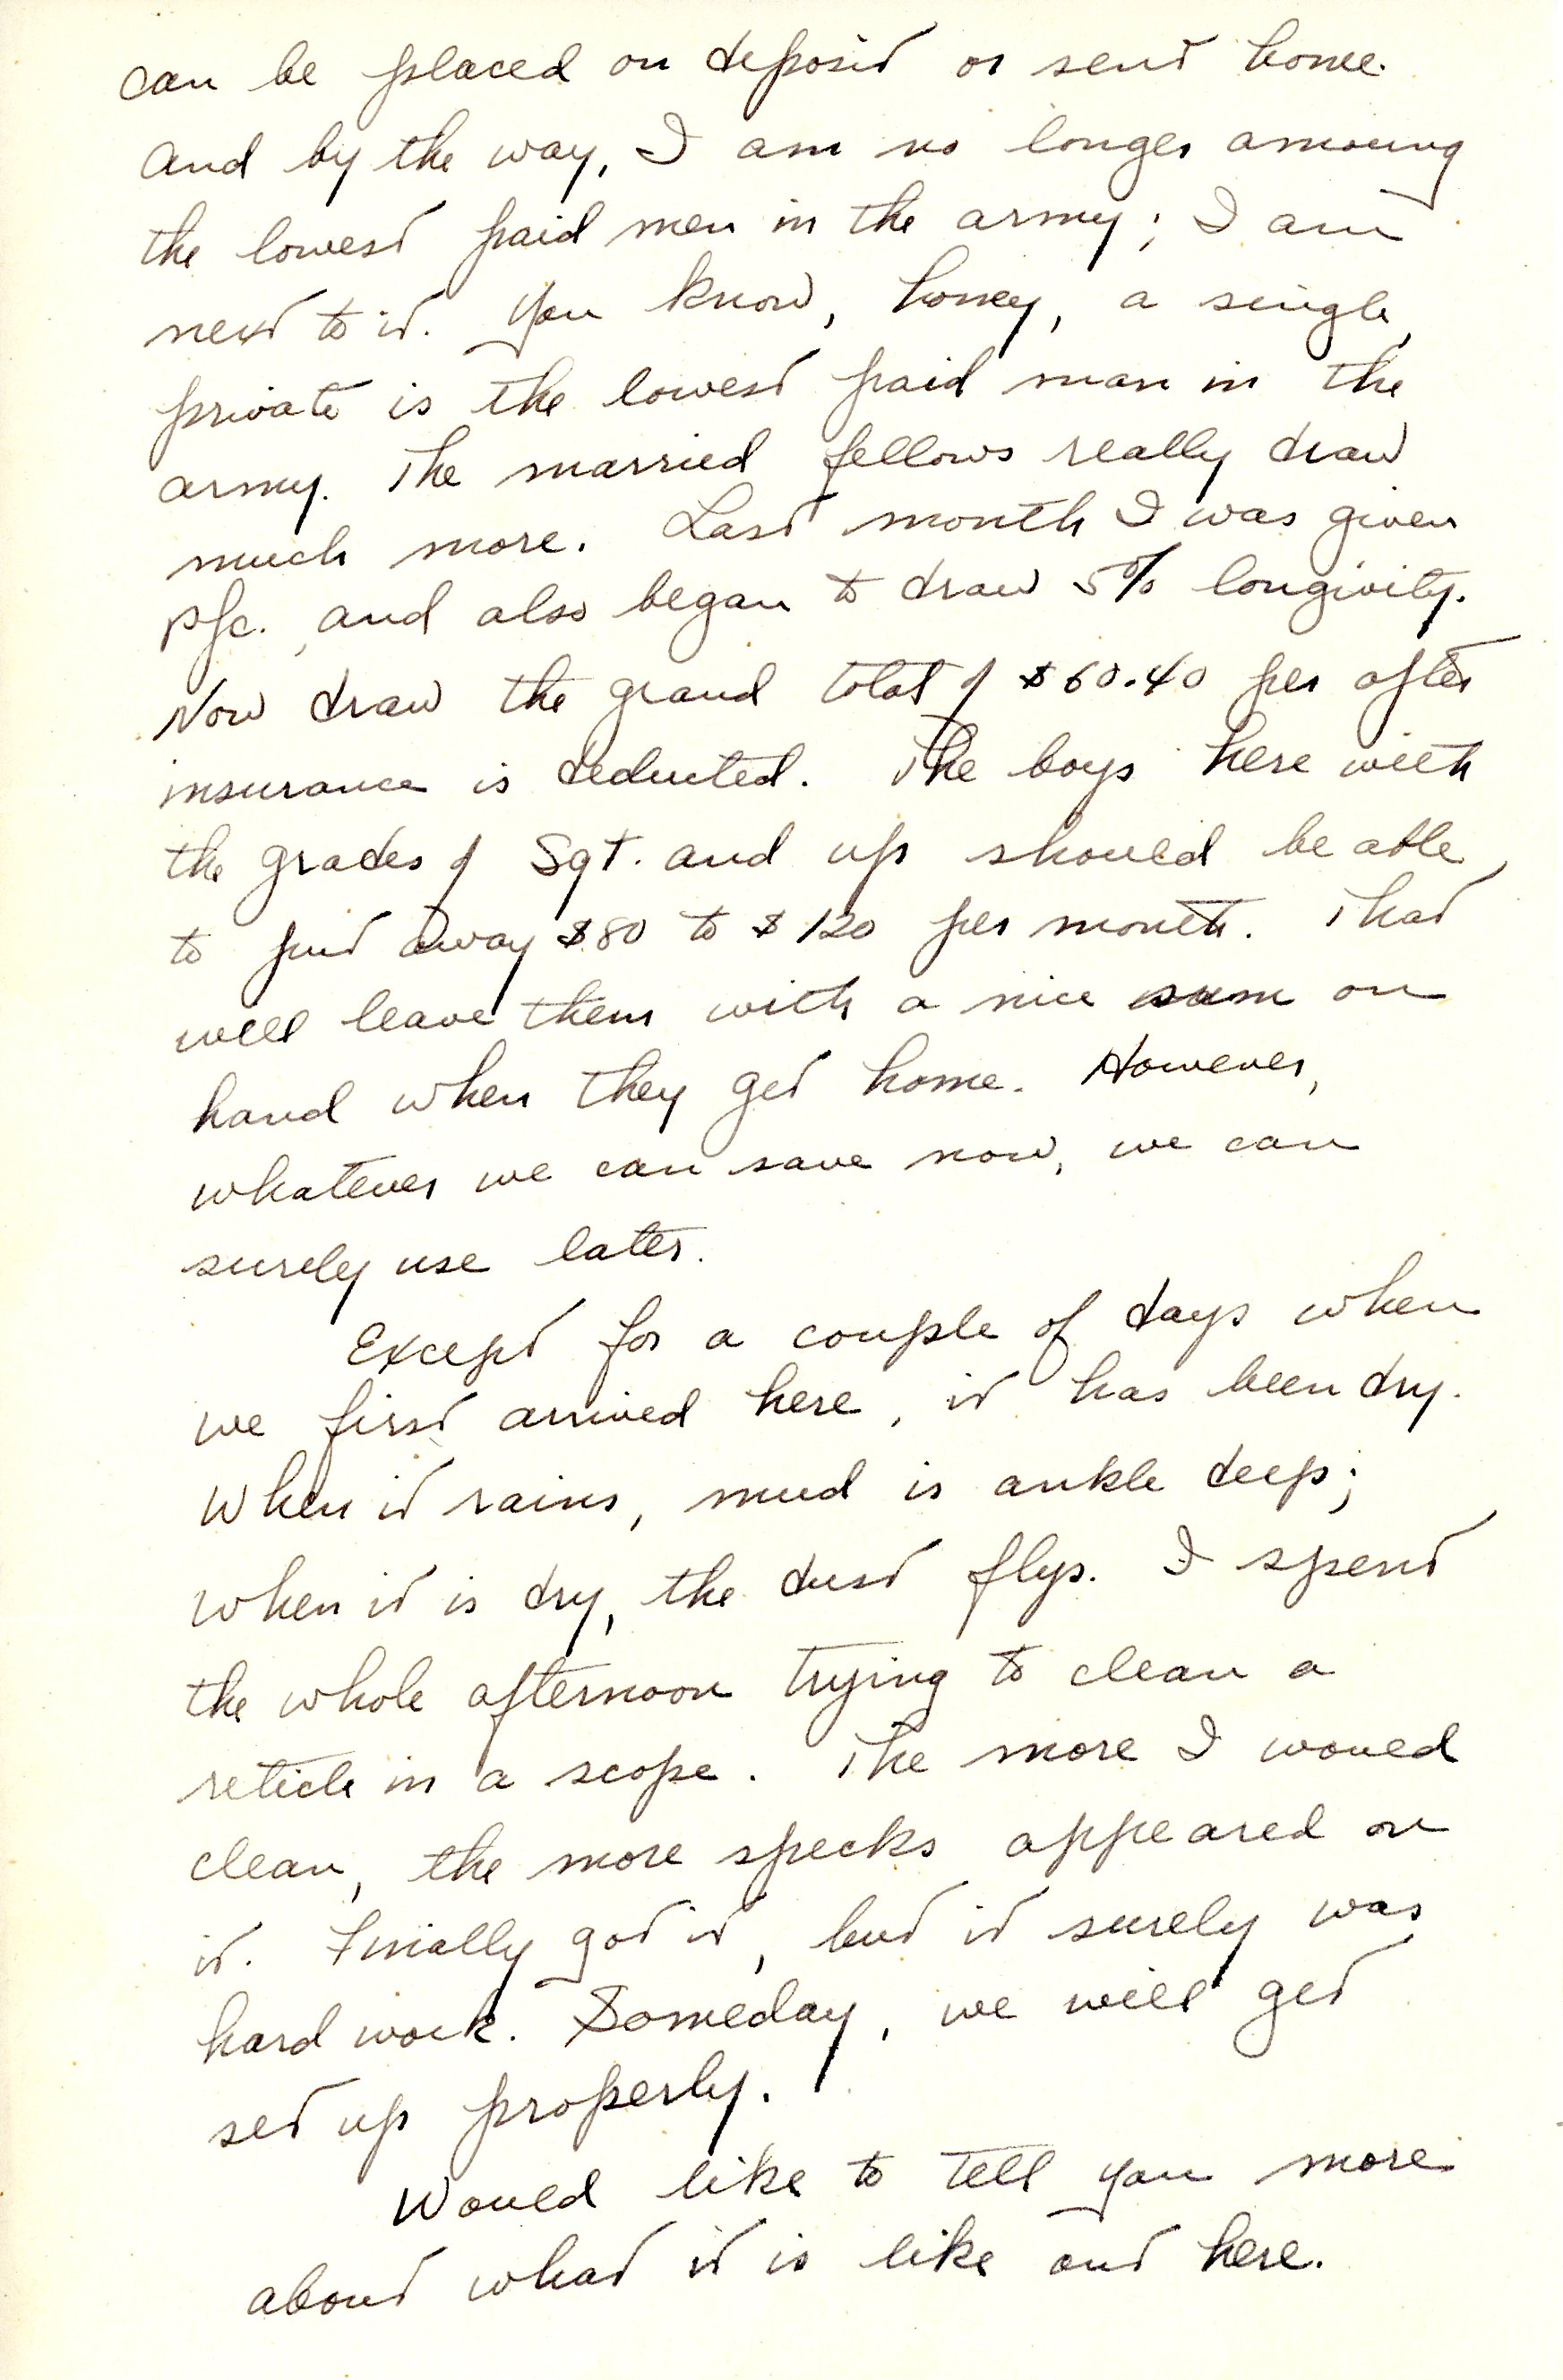 can be placed on deposit or sent home.
And by the way, I am no longer amoung
the lowest paid men in the army; I am
next to it. You know, honey, a single,
private is the lowest paid man in the
army. The married fellows really draw
much more. Last month I was given
Pfc. and also began to draw 5% longivity.
Now draw the grand total of $60.40 per after
insurance is deducted. The boys here with
the grades of Sgt. and up should be able
to put away $80 to $120 per month. That
will leave them with a nice sum on
hand when they get home. However,
whatever we can save now, we can
surely use later.
Except for a couple of days when
we first arrived here, it has been dry.
When it rains, mud is ankle deep;
when it is dry, the dust flys. I spent
the whole afternoon trying to clean a
reticle in a scope. The more I would
clean, the more specks appeared on
it. Finally got it, but it surely was
hard work. Someday, we will get
set up properly.
Would like to tell you more
about what it is like out here.